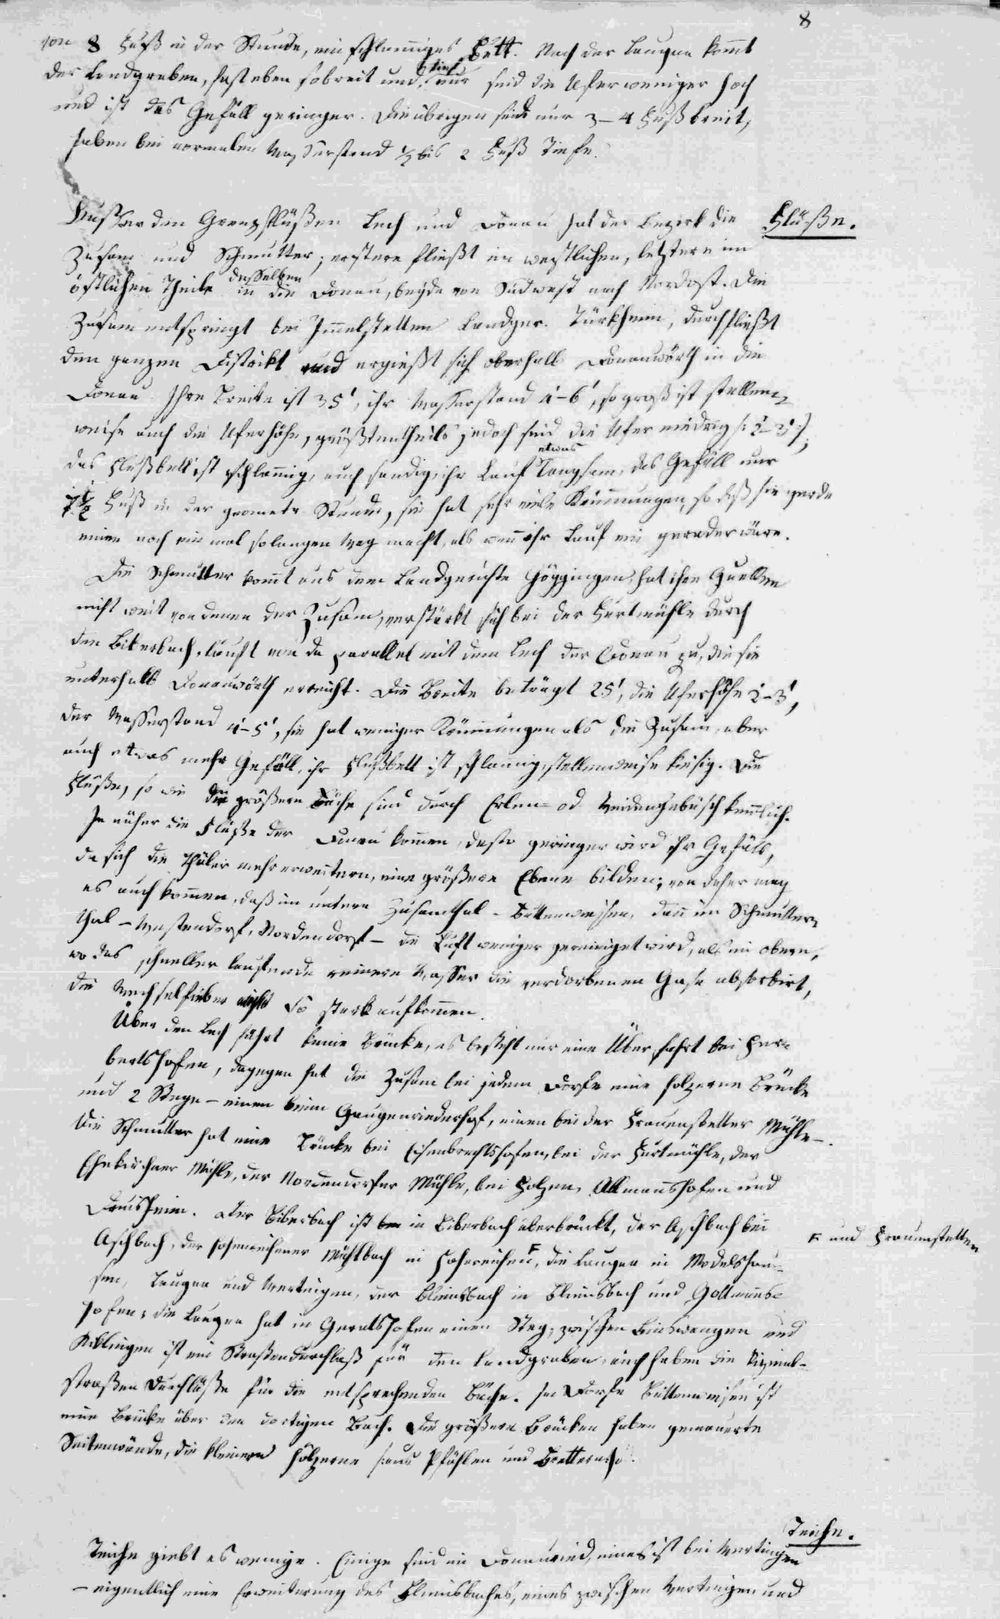 8
von 8 Fuß in der Stunde, ein schlammiges Bett. Nach der Laugna kommt
der Landgraben, fast eben so breit und tief, nur sind die Ufer weniger hoch
und ist das Gefäll geringer. Die übrigen sind nur 3–4 Fuß breit,
haben bei normalem Wasserstand ½ bis 2 Fuß Tiefe.
Flüße.
Ausser den Grenzflüßen Lech und Donau hat der Bezirk die
Zusam und Schmutter; erstere fließt im westlichen, letztere im
östlichen Theile desselben in die Donau, beyde von Südwest nach Nordost. Die
Zusam entspringt bei Immelstetten Landger. Türkheim, durchfließt
den ganzen Distrikt und ergießt sich oberhalb Donauwörth in die
Donau. Ihre Breite ist 35', ihr Wasserstand 4–6', so groß ist stellen-
weise auch die Uferhöhe, größtentheils jedoch sind die Ufer niedrig (: 2–3' :),
das Flußbett ist schlammig, auch sandig, ihr Lauf etwas langsam, das Gefäll nur
7½ Fuß in der geometr. Stunde, sie hat sehr viele Krümmungen, so daß sie gerade
einen noch ein mal so langen Weg macht, als wenn ihr Lauf ein gerader wäre.
Die Schmutter kommt aus dem Landgerichte Göggingen, hat ihre Quellen
nicht weit von denen der Zusam, verstärkt sich bei der Hurtmühle durch
den Biberbach, lauft von da parallel mit dem Lech der Donau zu, die sie
unterhalb Donauwörth erreicht. Die Breite beträgt 25', die Uferhöhe 2–3',
der Wasserstand 4–5', sie hat weniger Krümmungen als die Zusam, aber
auch etwas mehr Gefäll, ihr Flußbett ist schlammig, stellenweise kiesig. Die
Flüße, so wie die größern Bäche sind durch Erlen- od Weidengebüsch kenntlich.
Je näher die Flüße der Donau kommen, desto geringer wird ihr Gefäll,
da sich die Thäler mehr erweitern, eine größere Ebene bilden; von daher mag
es auch kommen, daß im untern Zusamthal – Buttenwiesen, dann im Schmutter-
thal – Westendorf, Nordendorf – die Luft weniger gereiniget wird, als im obern,
wo das schneller laufende reinere Wasser die verdorbenen Gase absorbirt,
die Wechselfieber nicht so stark aufkommen.
Über den Lech führt keine Brücke, es besteht nur eine Überfahrt bei Her-
bertshofen, dagegen hat die Zusam bei jedem Dorfe eine hölzerne Brücke
und 2 Stege – einen beim Gaugenriederhof, einen bei der Frauenstetter Mühle –.
Die Schmutter hat eine Brücke bei Eisenbrechtshofen, bei der Hurtmühle, der
Ehekirchner Mühle, der Nordendorfer Mühle, bei Holzen, Allmannshofen und
Druisheim. Der Biberbach ist in Biberbach überbrückt, der Aschbach bei
Aschbach, der Hohenreichener Mühlbach in Hohenreichen F, die Laugna in Modelshau-
F und Frauenstetten
sen, Laugna und Wertingen, der Bliensbach in Bliensbach und Gottmanns-
hofen; die Laugna hat in Geratshofen einen Steg; zwischen Binswangen und
Kicklingen ist ein Straßendurchlaß für den Landgraben; auch haben die Vizinal-
straßen Durchläße für die entsprechenden Bäche. Im Dorfe Buttenwiesen ist
eine Brücke über den dortigen Bach. Die größern Brücken haben gemauerte
Seitenwände, die kleinern hölzerne (: aus Pfählen und Brettern :).
Teiche.
Teiche giebt es wenige. Einige sind im Donauried, eines ist bei Wertingen
– eigentlich eine Erweiterung des Bliensbaches, eines zwischen Wertingen und